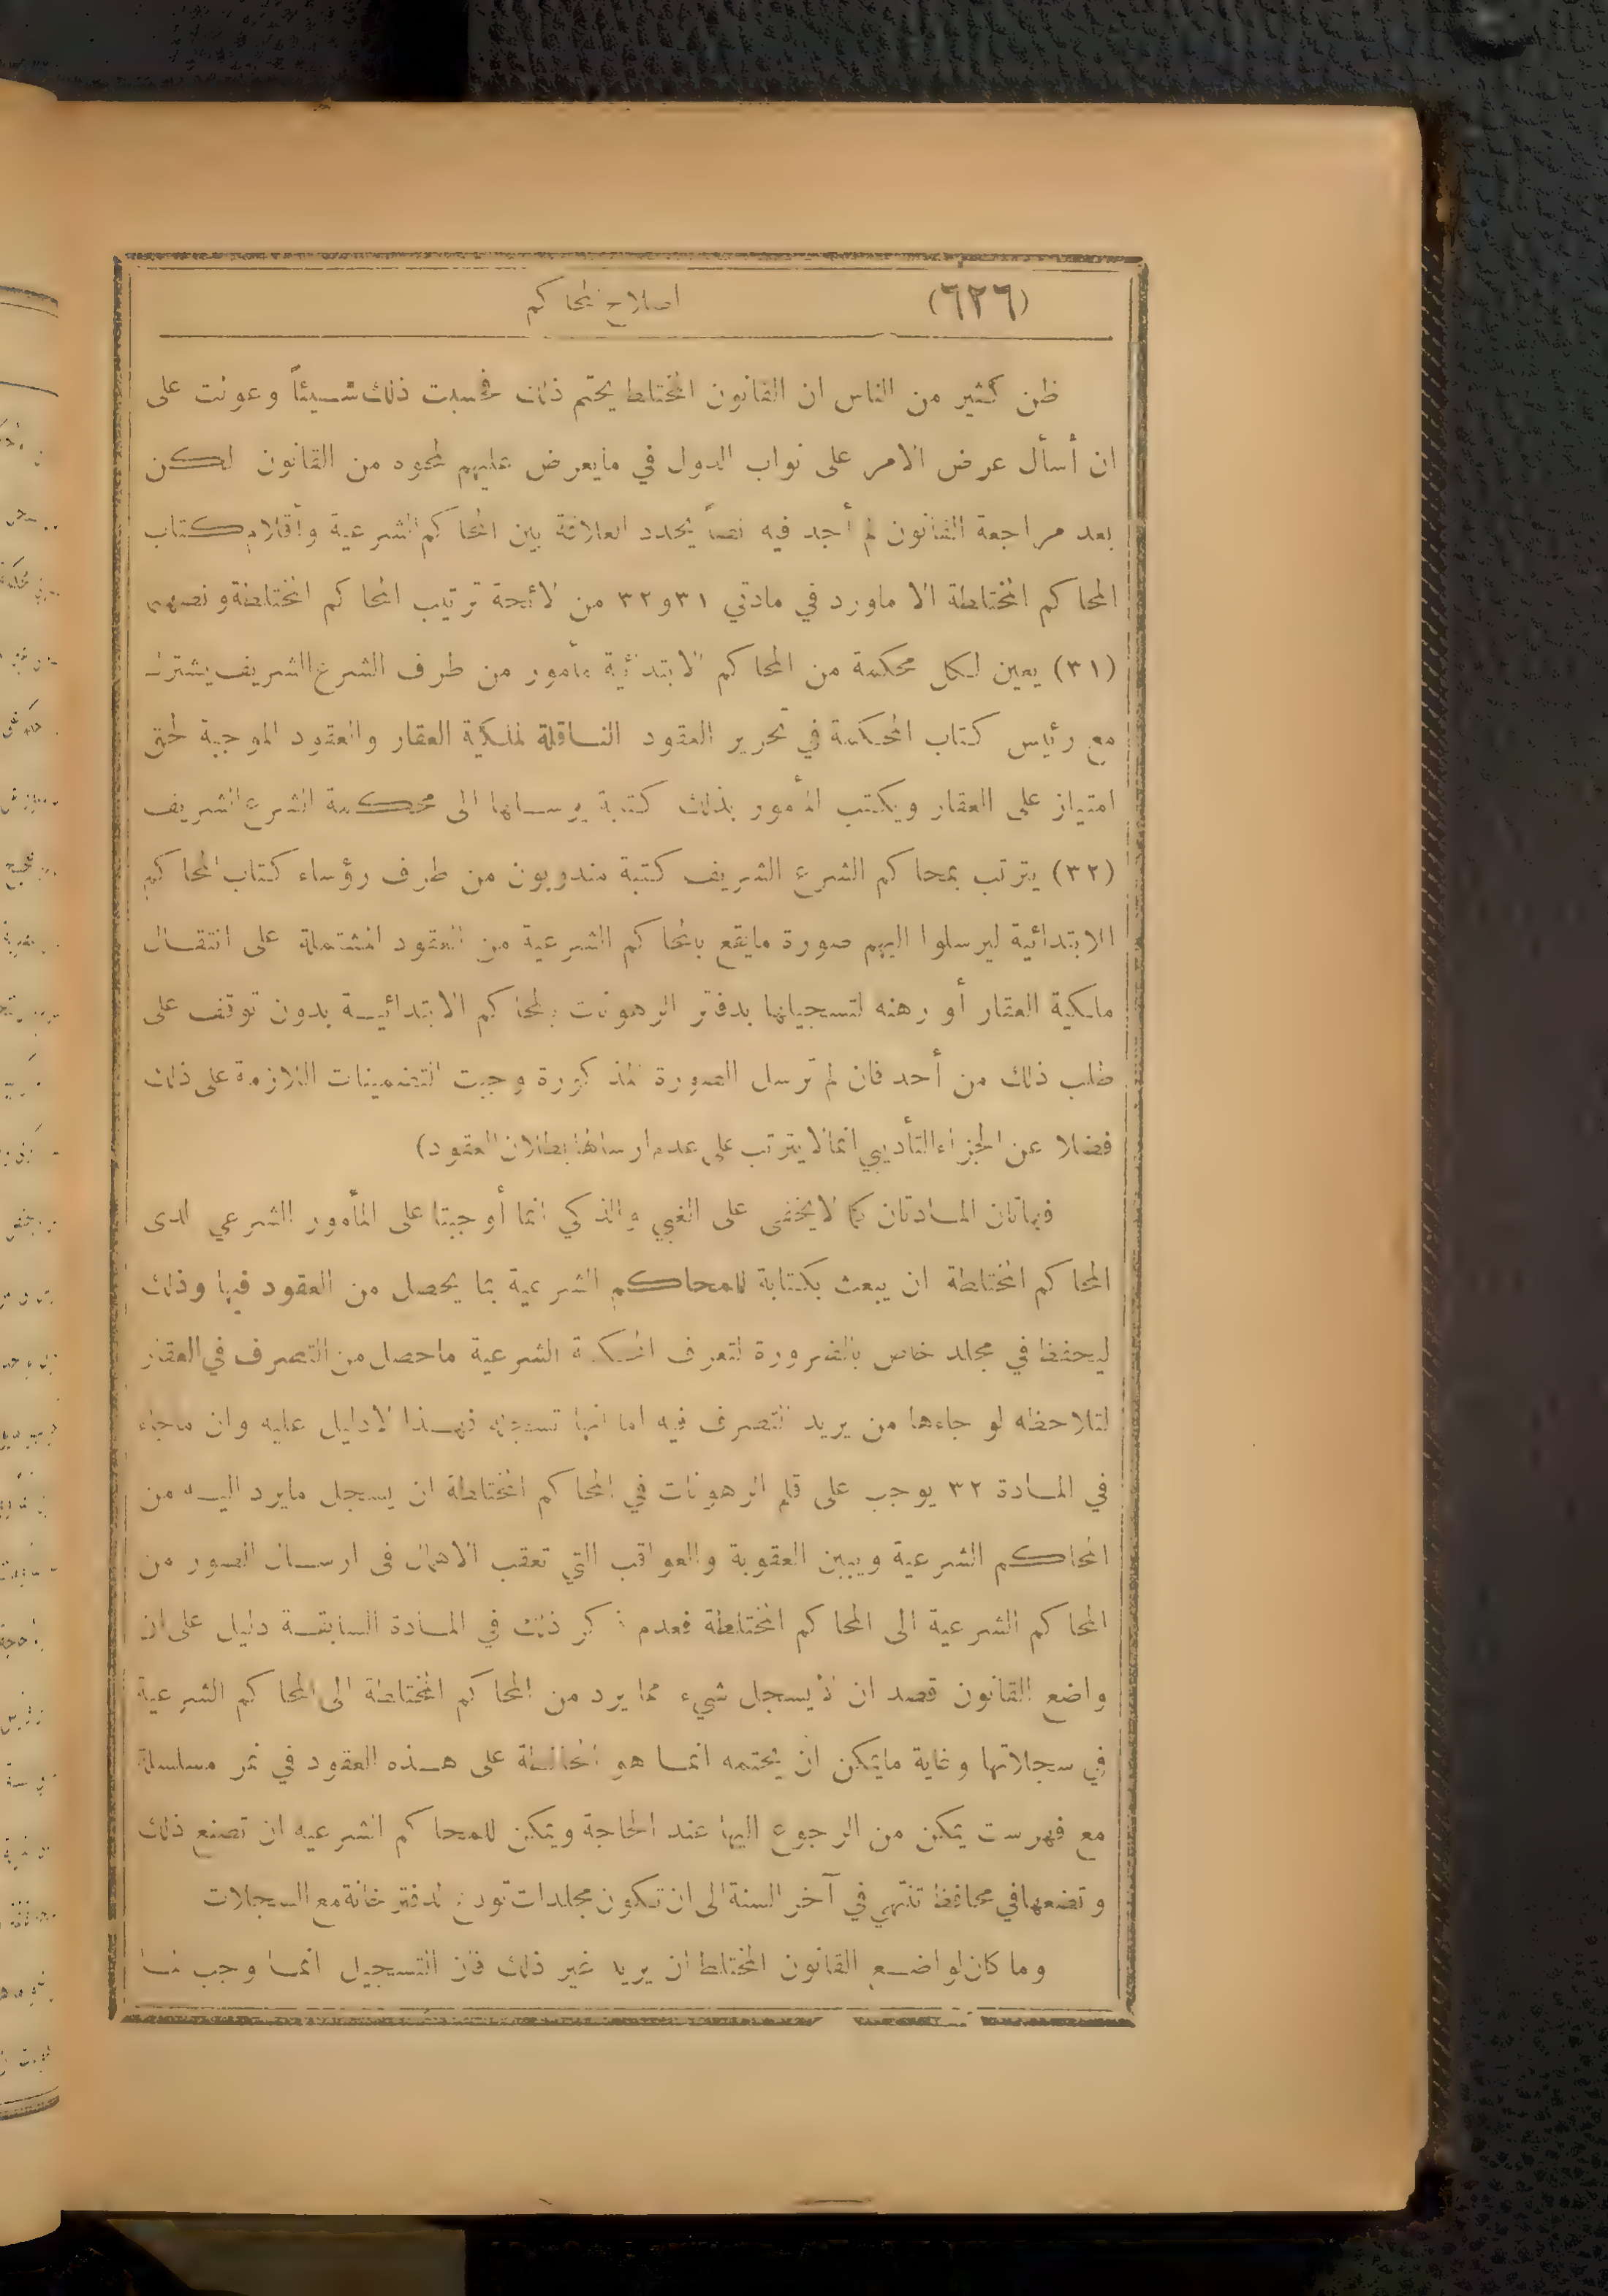 (٦٢٦) اصلاح المحاكم
ظن كثير من الناس ان القانون المختلط يحتم ذلك فحسبت ذلك شيئاً وعولت على
ان أسأل عرض الامر على نواب الدول في مايعرض عليهم لمحوه من القانون لكن
بعد مراجعة القانون لم أجد فيه نصاً يحدد العلاقة بين المحاكم الشرعية وأقلام كتاب
المحاكم المختلطة الا ماورد في مادتي ٣١ و٣٢ من لائحة ترتيب المحاكم المختلطة ونصهما
(٣١) يعين لكل محكمة من المحاكم الابتدائية مأمور من طرف الشرع الشريف يشترك
مع رئيس كتاب المحكمة في تحرير العقود الناقلة لملكية العقار والعقود الموجبة لحق
امتياز على العقار ويكتب المأمور بذلك كتبة يرسلها الى محكمة الشرع الشريف
(٣٢) يترتب بمحاكم الشرع الشريف كتبة مندوبون من طرف رؤساء كتاب المحاكم
الابتدائية ليرسلوا اليهم صورة مايقع بالمحاكم الشرعية من العقود المشتملة على انتقال
ملكية العقار أو رهنه لتسجيلها بدفتر الرهونات بالمحاكم الابتدائية بدون توقف على
طلب ذلك من أحد فان لم ترسل الصورة المذكورة وجبت التضمينات اللازمة على ذلك
فضلا عن الجزاء التأديبي انما لا يترتب على عدم ارسالها بطلان العقود)
فهاتان المادتان كما لايخفى على الغبي والذكي انما أوجبتا على المأمور الشرعي لدى
المحاكم المختلطة ان يبعث بكتابة للمحاكم الشرعية بما يحصل من العقود فيها وذلك
ليحفظ في مجلد خاص بالضرورة لتعرف المحكمة الشرعية ماحصل من التصرف في العقار
لتلاحظه لو جاءها من يريد التصرف فيه اما انها تسجله فهذا لادليل عليه وان ماجاء
في المادة ٣٢ يوجب على قلم الرهونات في المحاكم المختلطة ان يسجل مايرد اليه من
المحاكم الشرعية ويبين العقوبة والعواقب التي تعقب الاهمال فى ارسال الصور من
المحاكم الشرعية الى المحاكم المختلطة فعدم ذكر ذلك في المادة السابقة دليل على ان
واضع القانون قصد ان لايسجل شيء مما يرد من المحاكم المختلطة الى المحاكم الشرعية
في سجلاتها وغاية مايمكن ان يحتمه انما هو المحافظة على هذه العقود في نمر مسلسلة
مع فهرست يمكن من الرجوع اليها عند الحاجة ويمكن للمحاكم الشرعيه ان تصنع ذلك
وتضعها في محافظ تنتهي في آخر السنة الى ان تكون مجلدات تودع الدفترخانة مع السجلات
وما كان لواضع القانون المختلط ان يريد غير ذلك فان التسجيل انما وجب لما